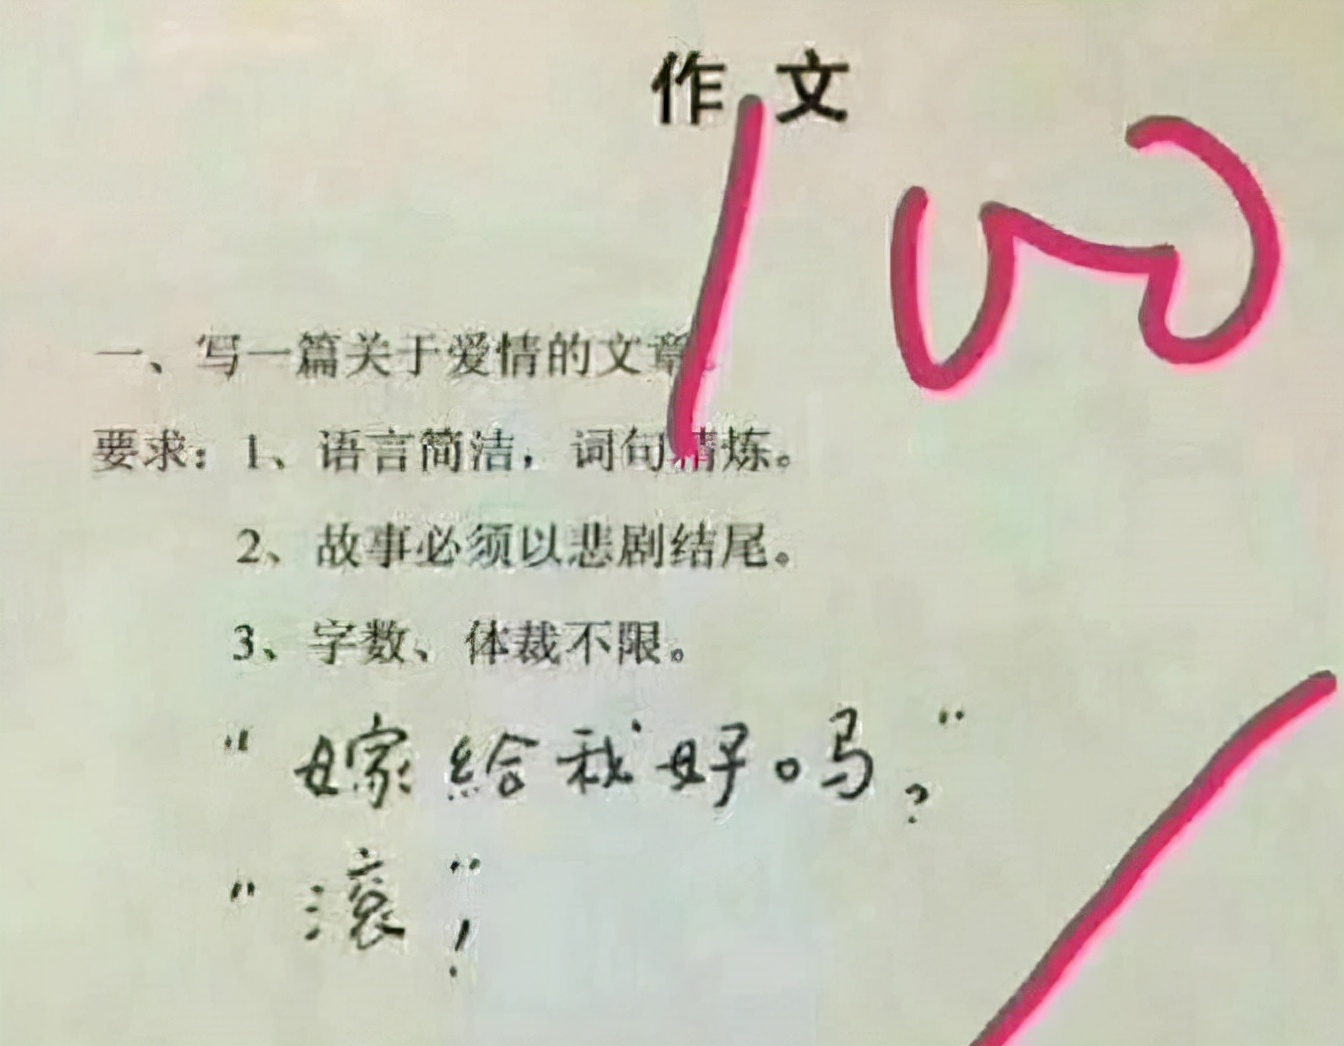 作文
100
一、写一篇关于爱情的文章。
要求：1、语言简洁，词句精炼。
2、故事必须以悲剧结尾。
3、字数、体裁不限。
“嫁给我好吗？”
“滚！”